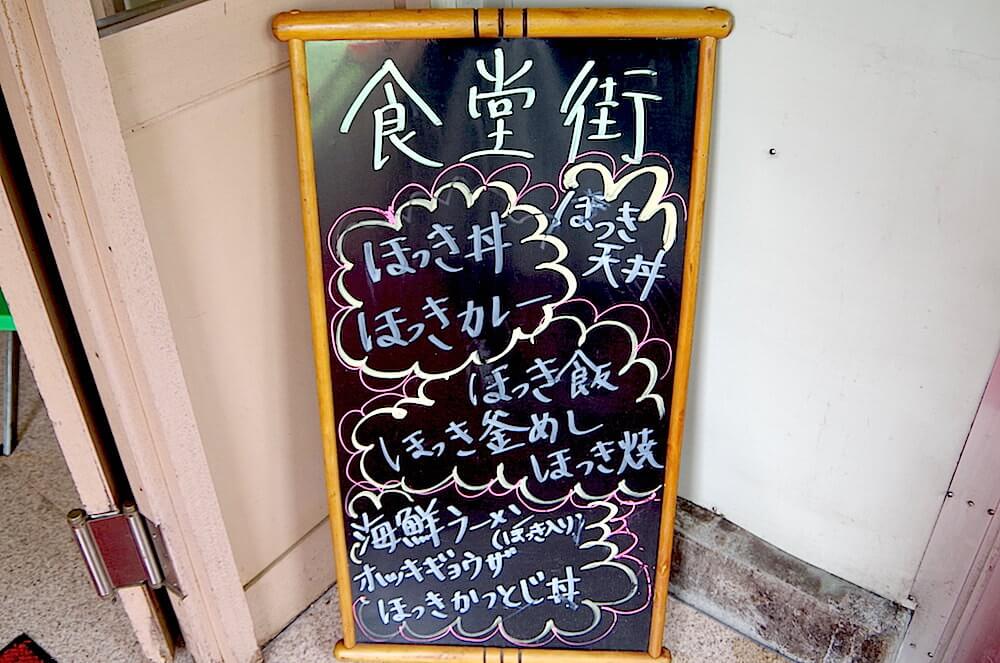 食堂街
ほっき丼
ほっきカレー
ほっき
天丼
ほっき飯
ほっき釜めし
ほっき焼
海鮮ラーメン(ほっき入り)
ホッキギョウザ
ほっきかつとじ丼